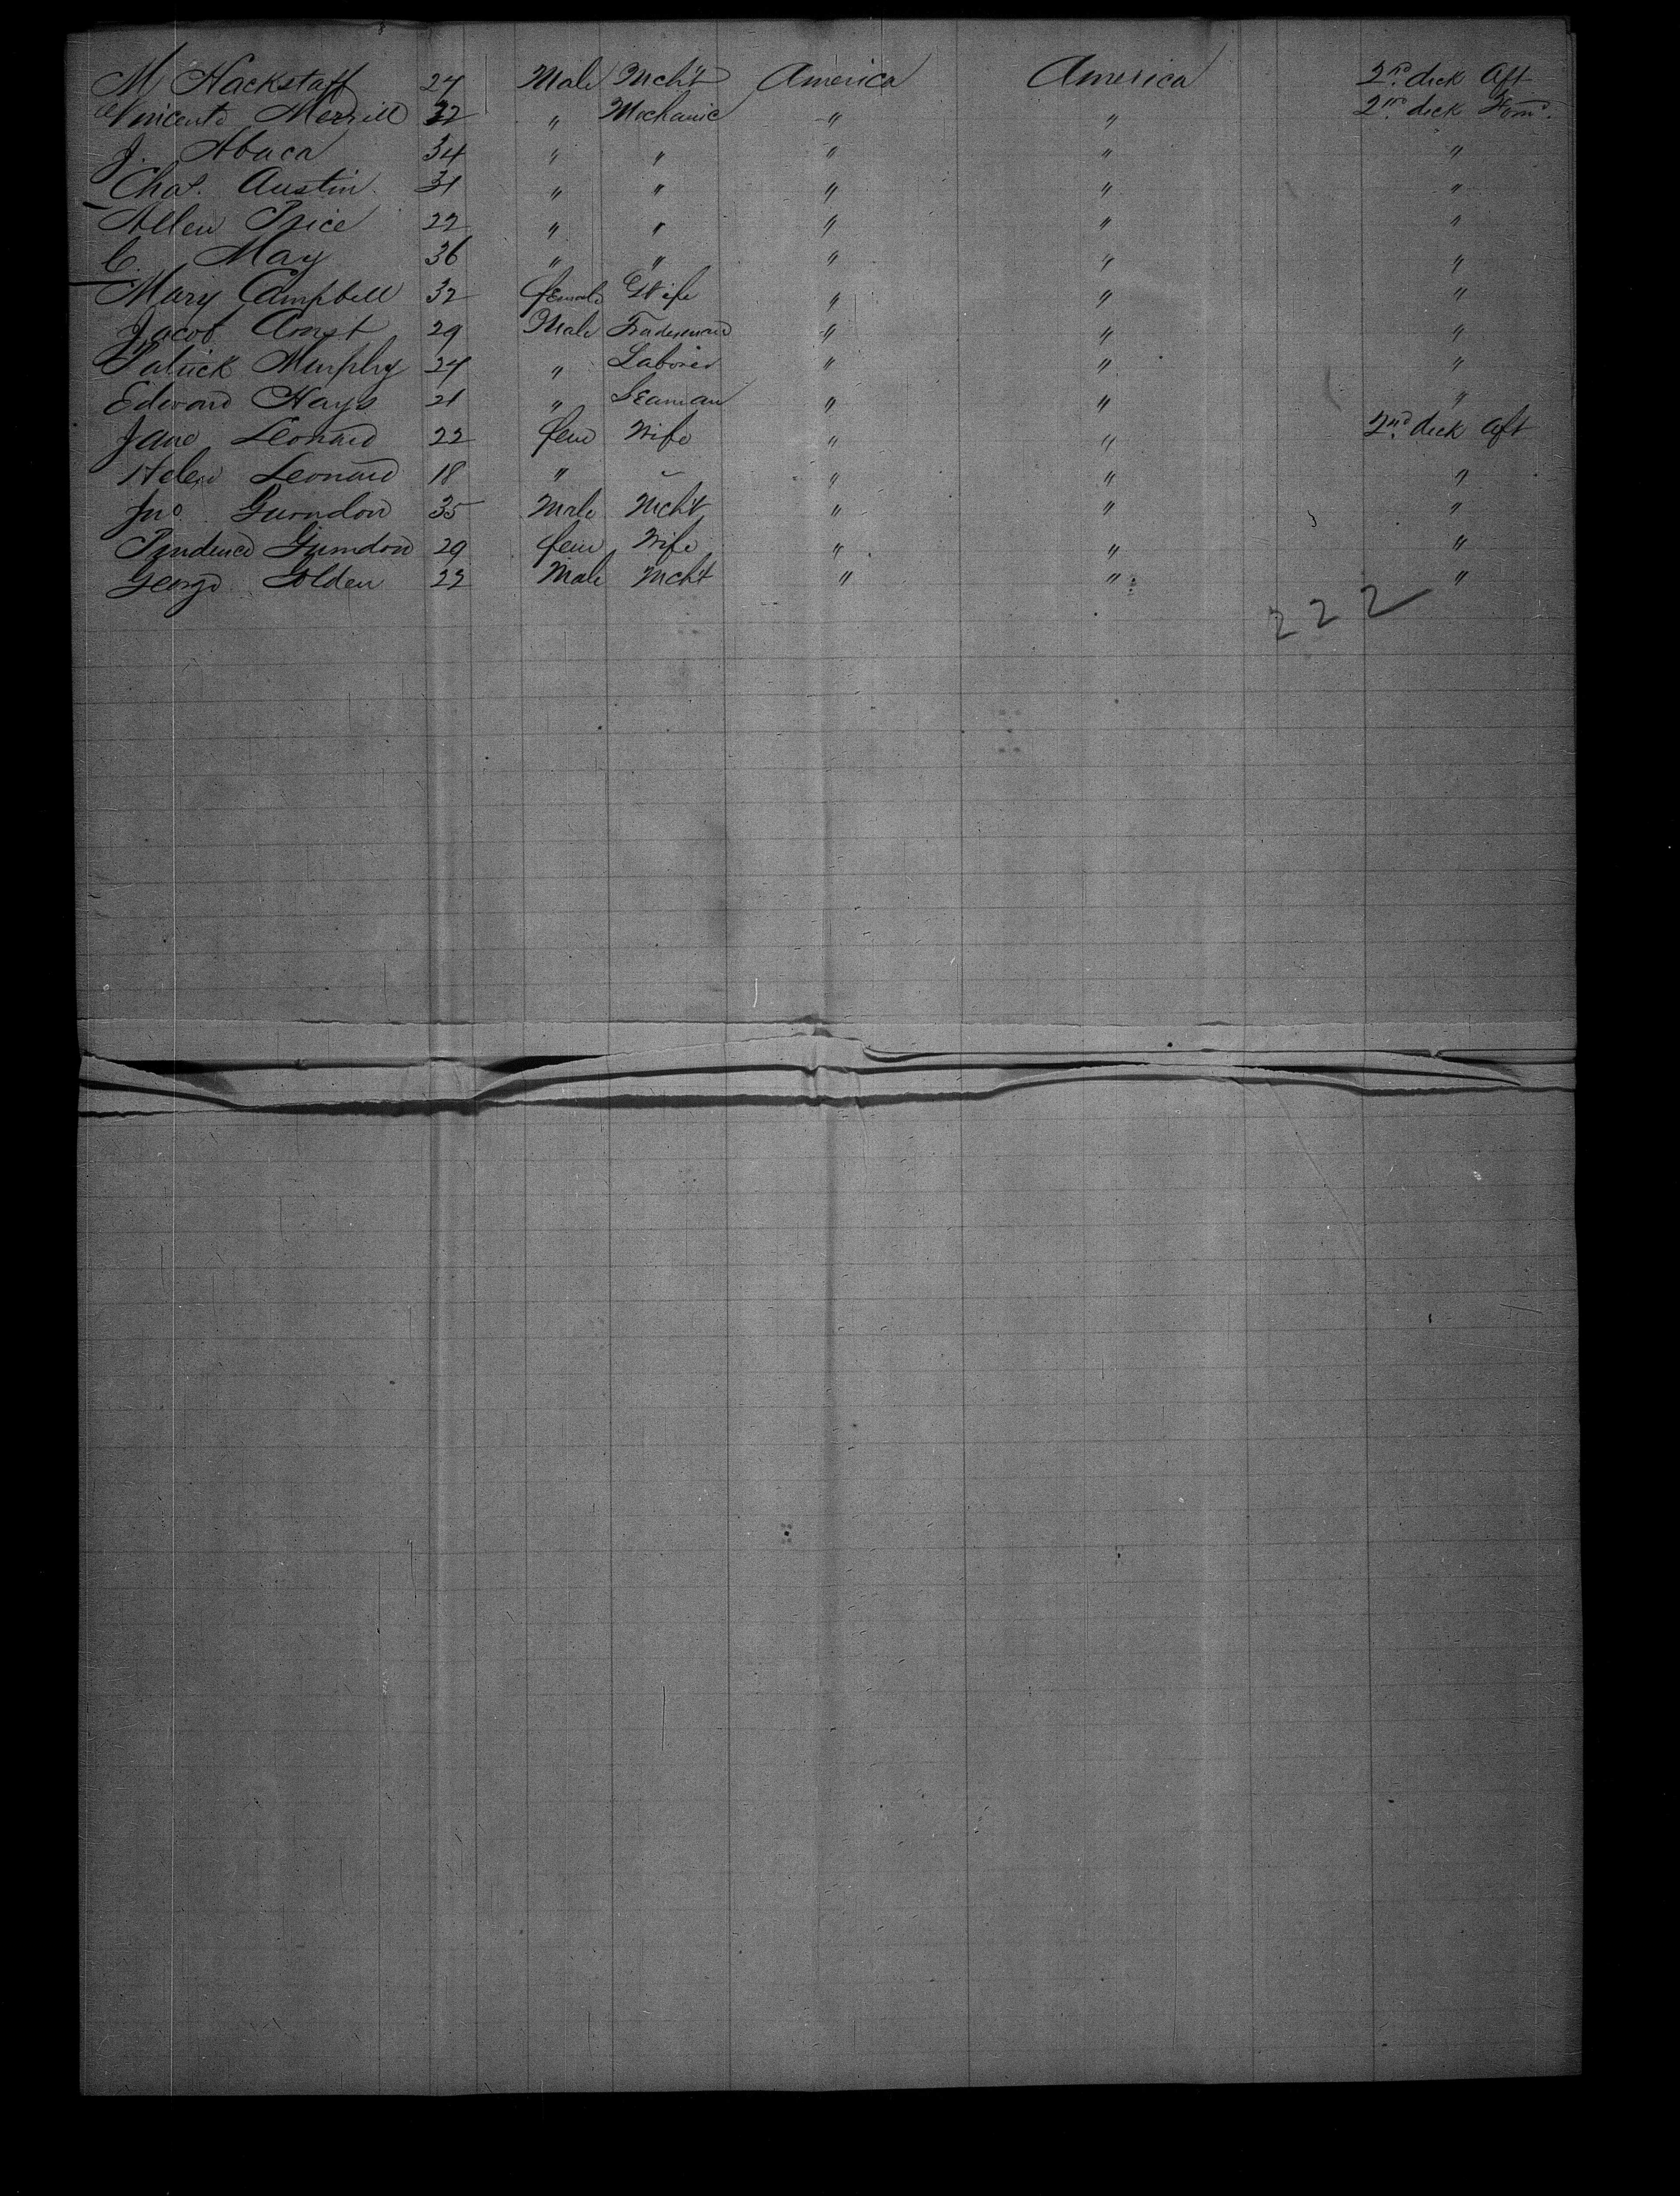 M Hackstaff 24 Male Mcht America America 2nd deck Aft
Vincente Merrill 32 " Mechanic " " 2nd deck Forwd.
J. Abaca 34 " " " " "
Chas. Austin 31 " " " " "
Allen Price 22 " " " " "
C. May 36 " " " " "
Mary Campbell 32 female Wife " " "
Jacob Ernst 29 Male Tradesman " " "
Patrick Murphy 24 " Laborer " " "
Edward Hays 21 " Seaman " " "
Jane Leonard 22 fem Wife " " 2nd deck aft
Helen Leonard 18 " " " " "
Jno. Gurndon 35 Male Mcht " " "
Prudence Gurndon 29 fem Wife " " "
George Golden 22 Male Mcht " " "
222